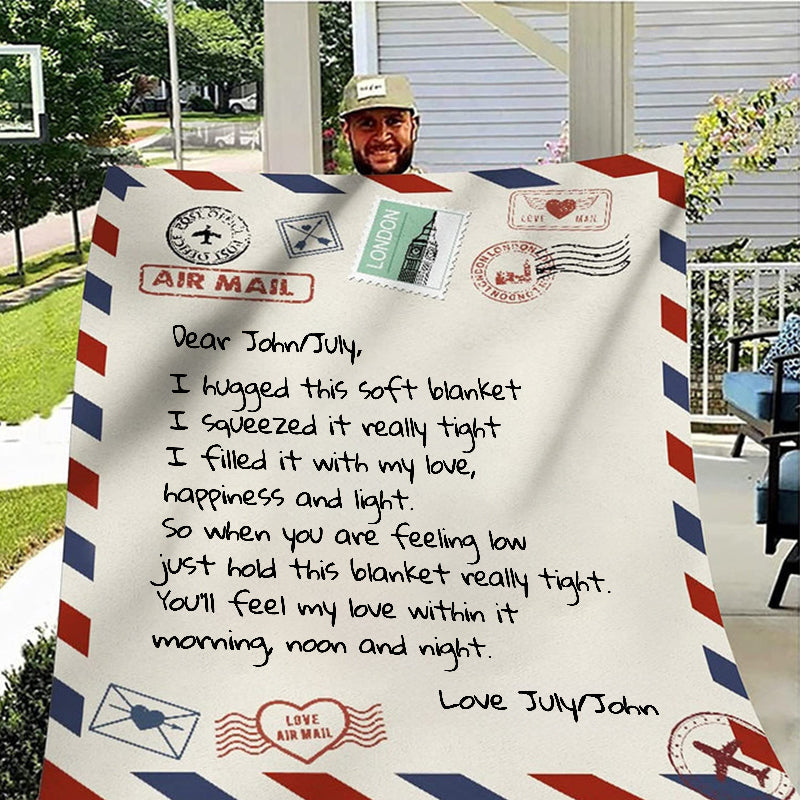 POST OFFICE
LONDON
LOVE MAIL
AIR MAIL
LONDON LONDON LONDON
Dear John/July,
I hugged this soft blanket
I squeezed it really tight
I filled it with my love,
happiness and light.
So when you are feeling low
just hold this blanket really tight.
You'll feel my love within it
morning, noon and night.
Love July/John
LOVE
AIR MAIL